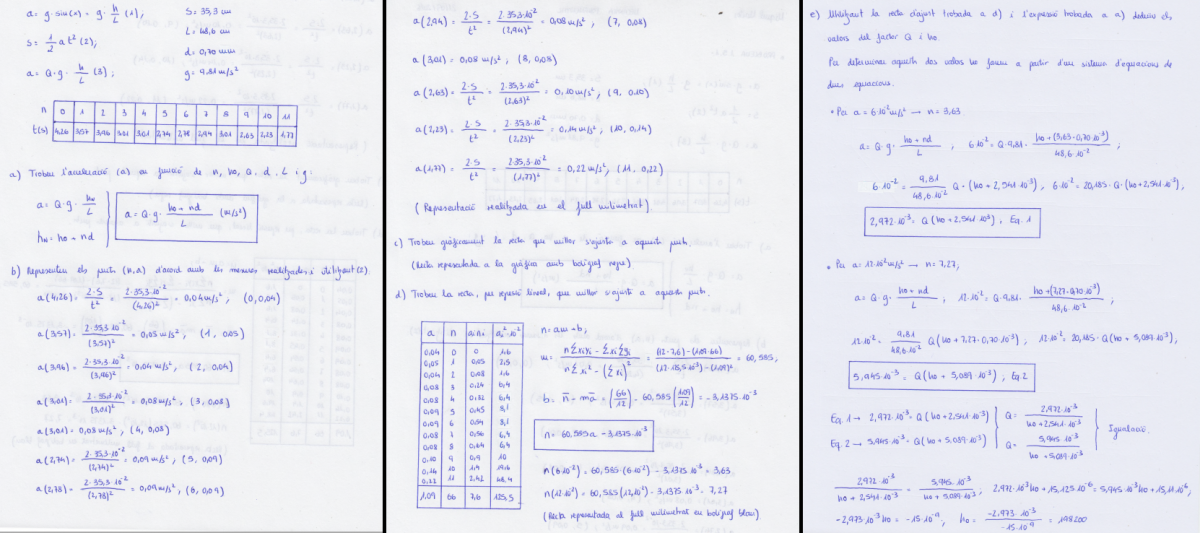 a = g·sin(α) = g· h/L (1),
S = 35,3 cm
S = 1/2 a t² (2);
L = 48,6 cm
d = 0,70 mm
a = Q·g· h/L (3);
g = 9.81 m/s²
n 0 1 2 3 4 5 6 7 8 9 10 11
t(s) 4,26 3,57 3,96 3,01 3,01 2,74 2,78 2,94 3,01 2,63 2,23 1,77
a) Trobeu l'acceleració (a) en funció de n, ho, Q, d, L i g:
a = Q·g· hn/L
a = Q·g· (ho + nd)/L (m/s²)
hn = ho + nd
b) Representeu els punts (n,a) d'acord amb les mesures realitzades i utilitzant (2)
a(4,26) = 2·S/t² = 2·35,3·10⁻²/(4,26)² = 0,04 m/s², (0, 0,04)
a(3,57) = 2·35,3·10⁻²/(3,57)² = 0,05 m/s², (1, 0,05)
a(3,96) = 2·35,3·10⁻²/(3,96)² = 0,04 m/s², (2, 0,04)
a(3,01) = 2·35,3·10⁻²/(3,01)² = 0,08 m/s², (3, 0,08)
a(3,01) = 0,08 m/s², (4, 0,08)
a(2,74) = 2·35,3·10⁻²/(2,74)² = 0,09 m/s², (5, 0,09)
a(2,78) = 2·35,3·10⁻²/(2,78)² = 0,09 m/s², (6, 0,09)
a(2,94) = 2·S/t² = 2·35,3·10⁻²/(2,94)² = 0,08 m/s², (7, 0,08)
a(3,01) = 0,08 m/s², (8, 0,08)
a(2,63) = 2·S/t² = 2·35,3·10⁻²/(2,63)² = 0,10 m/s², (9, 0,10)
a(2,23) = 2·S/t² = 2·35,3·10⁻²/(2,23)² = 0,14 m/s², (10, 0,14)
a(1,77) = 2·S/t² = 2·35,3·10⁻²/(1,77)² = 0,22 m/s², (11, 0,22)
(Representació realitzada en el full milimetrat).
c) Trobeu gràficament la recta que millor s'ajusta a aquests punts.
(Recta representada a la gràfica amb bolígraf negre)
d) Trobeu la recta, per regressió lineal, que millor s'ajusti a aquests punts.
a n ai·ni ai²·10⁻³
0,04 0 0 1,6
0,05 1 0,05 2,5
0,04 2 0,08 1,6
0,08 3 0,24 6,4
0,08 4 0,32 6,4
0,09 5 0,45 8,1
0,09 6 0,54 8,1
0,08 7 0,56 6,4
0,08 8 0,64 6,4
0,10 9 0,9 10
0,14 10 1,4 19,6
0,22 11 2,42 48,4
1,09 66 7,6 125,5
n = am + b;
m = (n∑xiyi − ∑xi∑yi)/(n∑xi² − (∑xi)²) = ((12·7,6) − (1,09·66))/((12·125,5·10⁻³) − (1,09)²) = 60,585,
b = n̄ − mā = (66/12) − 60,585 (1,09/12) = −3,1375·10⁻³
n = 60,585a − 3,1375·10⁻³
n(6·10⁻²) = 60,585·(6·10⁻²) − 3,1375·10⁻³ = 3,63
n(12·10⁻²) = 60,585(12·10⁻²) − 3,1375·10⁻³ = 7,27
(Recta representada al full milimetrat en bolígraf blau).
e) Utilitzant la recta d'ajust trobada a d) i l'expressió trobada a a) deduïu els
valors del factor Q i ho.
Per determinar aquests dos valors ho farem a partir d'un sistema d'equacions de
dues equacions.
• Per a = 6·10⁻² m/s² → n = 3,63
a = Q·g· (ho + nd)/L, 6·10⁻² = Q·9,81· (ho + (3,63·0,70·10⁻³))/(48,6·10⁻²);
6·10⁻² = 9,81/(48,6·10⁻²) Q·(ho + 2,541·10⁻³), 6·10⁻² = 20,185·Q·(ho + 2,541·10⁻³),
2,972·10⁻³ = Q(ho + 2,541·10⁻³), Eq. 1
• Per a = 12·10⁻² m/s² → n = 7,27,
a = Q·g· (ho + nd)/L, 12·10⁻² = Q·9,81· (ho + (7,27·0,70·10⁻³))/(48,6·10⁻²);
12·10⁻² = 9,81/(48,6·10⁻²) Q(ho + 7,27·0,70·10⁻³), 12·10⁻² = 20,185·Q(ho + 5,089·10⁻³),
5,945·10⁻³ = Q(ho + 5,089·10⁻³), Eq. 2
Eq. 1 → 2,972·10⁻³ = Q(ho + 2,541·10⁻³) Q = 2,972·10⁻³/(ho + 2,541·10⁻³)
Eq. 2 → 5,945·10⁻³ = Q(ho + 5,089·10⁻³) Q = 5,945·10⁻³/(ho + 5,089·10⁻³)
Igualació.
2,972·10⁻³/(ho + 2,541·10⁻³) = 5,945·10⁻³/(ho + 5,089·10⁻³); 2,972·10⁻³ho + 15,125·10⁻⁶ = 5,945·10⁻³ho + 15,11·10⁻⁶,
−2,973·10⁻³ho = −15·10⁻⁹, ho = −2,973·10⁻³/−15·10⁻⁹ = 198200